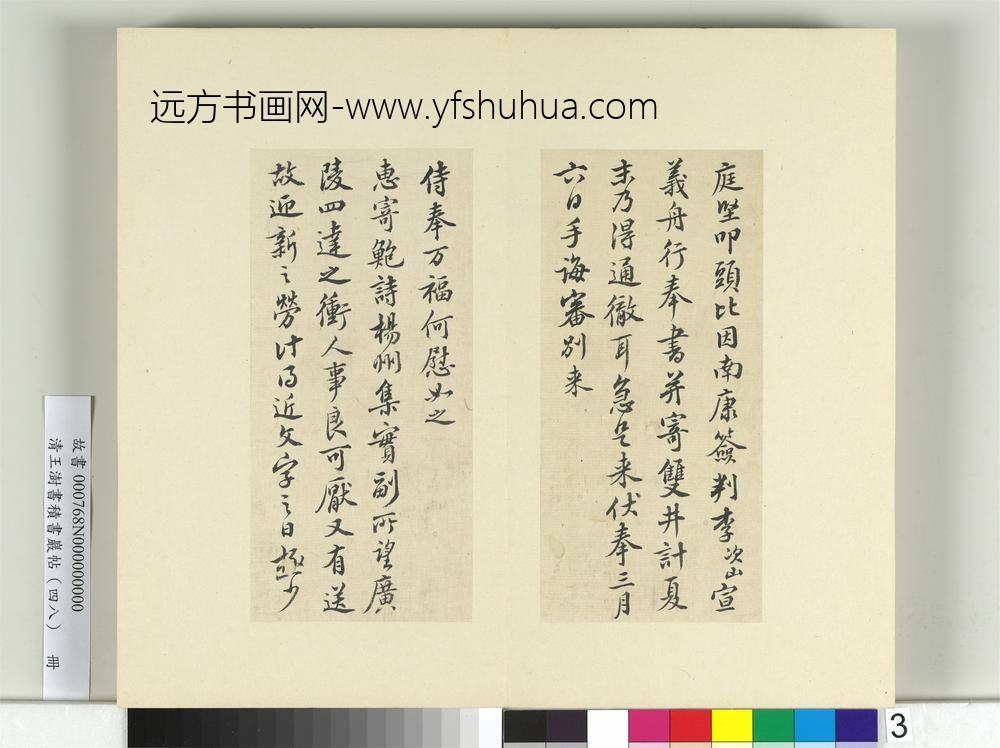 远方书画网-www.yfshuhua.com
庭堅叩頭比因南康簽判李次山宣
義舟行奉書并寄雙井計夏
末乃得通徹耳急足来伏奉三月
六日手誨審別来
侍奉万福何慰如之
惠寄鮑詩楊州集實副所望廣
陵四達之衝人事良可厭又有送
故迎新之勞計得近文字之日極少
故書 000768N000000000
清王澍書積書巖帖（四八） 冊
3